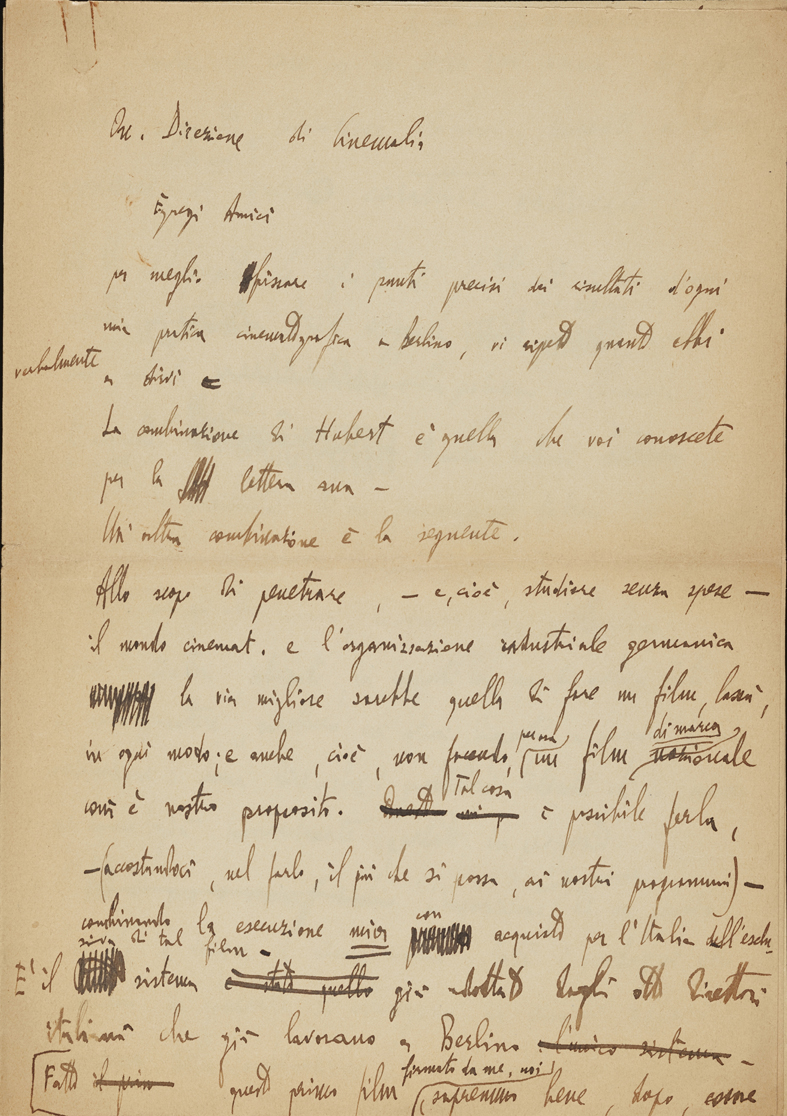 On. Direzione di Cinemalia
Egregi Amici
per meglio fissare i punti precisi dei risultati d'ogni
mia pratica cinematografica a Berlino, vi ripeto quanto ebbi
verbalmente
a dirvi
La combinazione di Hubert è quella che voi conoscete
per la lettera sua –
Un'altra combinazione è la seguente.
Allo scopo di penetrare, – e, cioè, studiare senza spese –
il mondo cinemat. e l'organizzazione industriale germanica
la via migliore sarebbe quella di fare un film, lassù,
in ogni modo; e anche, cioè, non facendo,
per ora
di marca
un film nazionale
com'è nostro proposito. Questo
Tal cosa
è possibile farla,
– (accostandoci, nel farlo, il più che si possa, ai nostri programmi) –
combinando la esecuzione mia
con
acquisto per l'Italia dell'esclu-
siva di tal film –
E' il sistema è stato quello già adottato dagli otto direttori
italiani che già lavorano a Berlino l'unico sistema –
Fatto il primo questo primo film
formato da me, noi
sapremmo bene, dopo, essere